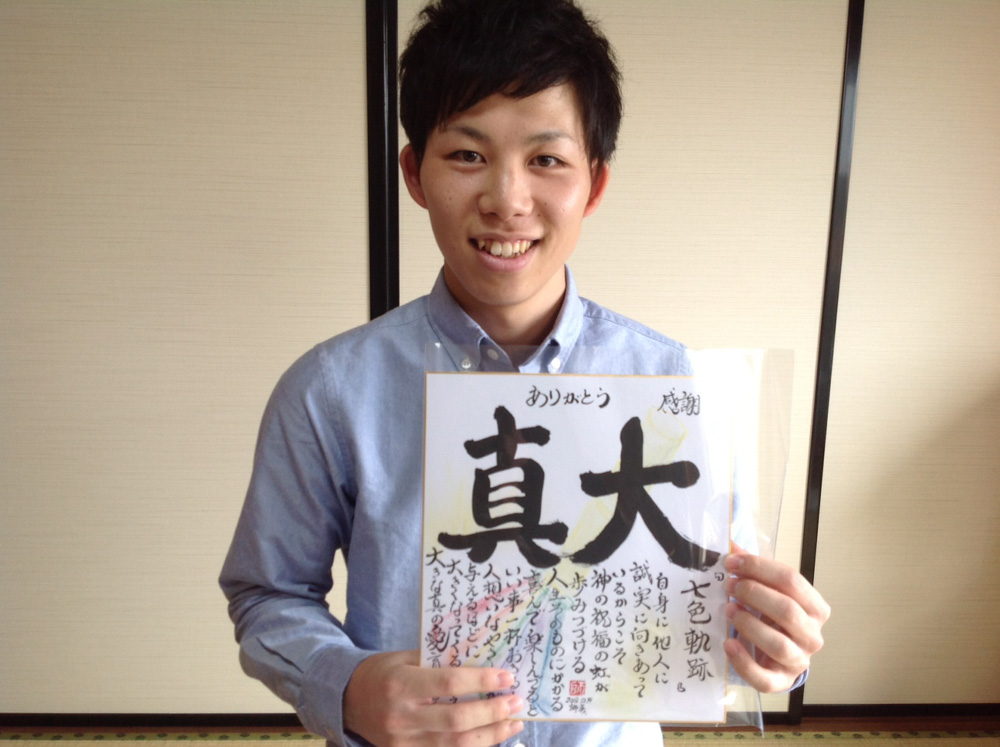 感謝
ありがとう
大真
『七色軌跡』
自身に他人に
誠実に向きあって
いるからこそ
神の祝福の虹が
歩みつづける
人生そのものにかかる
喜んで楽しんでると
いい事一杯おこる
人想いなやさ
与えるほどに
大きくなってくる
大きな真の愛